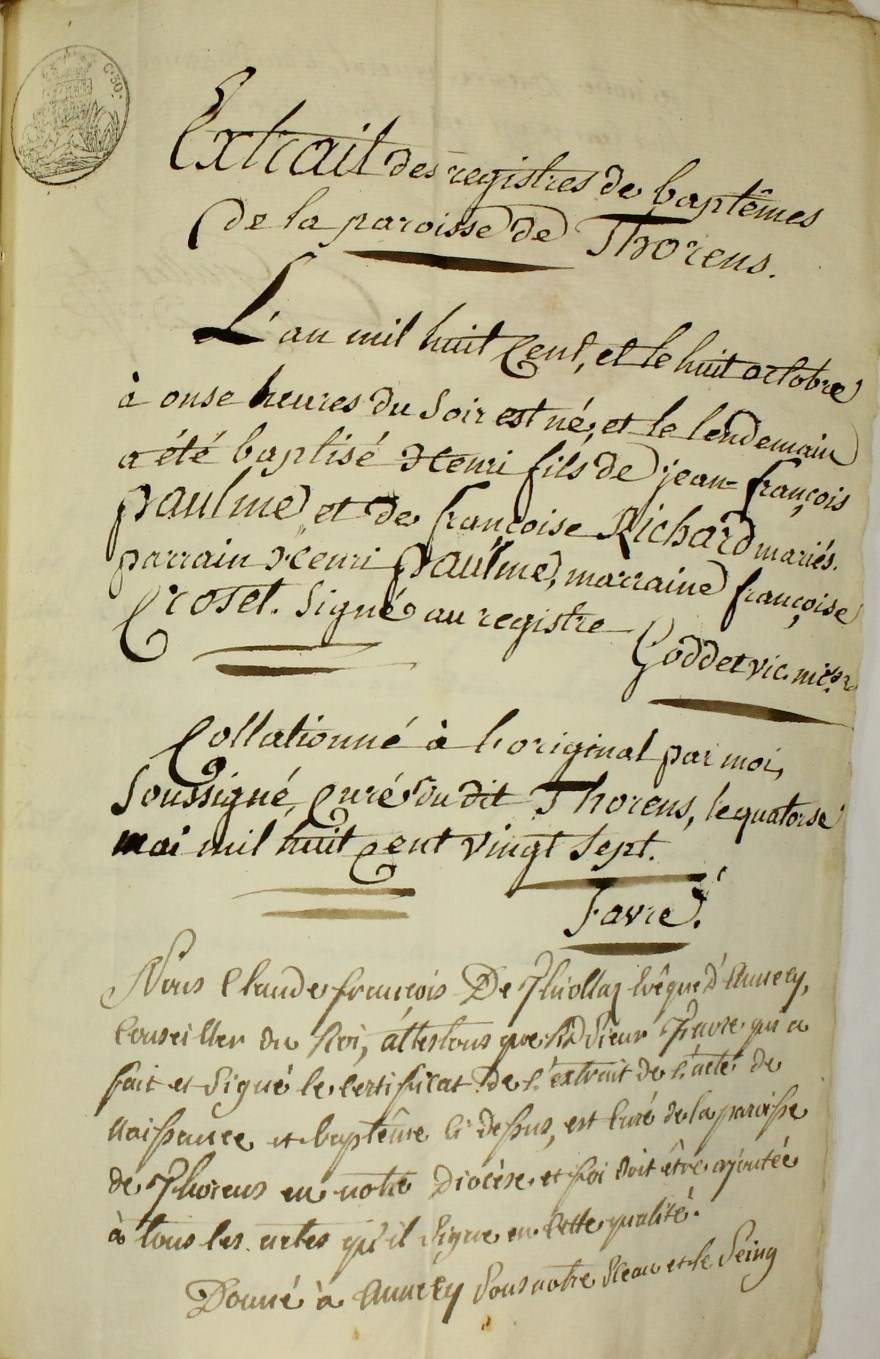 C. 30.
Extrait des registres de baptêmes
de la paroisse de Thorens.
L'an mil huit cent, et le huit octobre
à onse heures du soir est né, et le lendemain
a été baptisé henri fils de jean-françois
paulme et de françoise Richard mariés.
parrain henri paulme, marraine françoise
Croset. Signé au registre
Goddet vic.
Collationné à l'original par moi,
Soussigné, Curé du dit Thorens, le quatorse
mai mil huit cent vingt sept.
Favre.
Nous Claude françois De Thiollaz Evêque d'Annecy,
Conseiller du Roi, attestons que Sieur Favre qui a
fait et signé le certificat de l'extrait de l'acte de
naissance et baptême ci dessus, est curé de la paroisse
de Thorens en notre Diocèse et foi doit être ajoutée
à tous les actes qu'il signe en cette qualité.
Donné à Annecy sous notre sceau et le seing